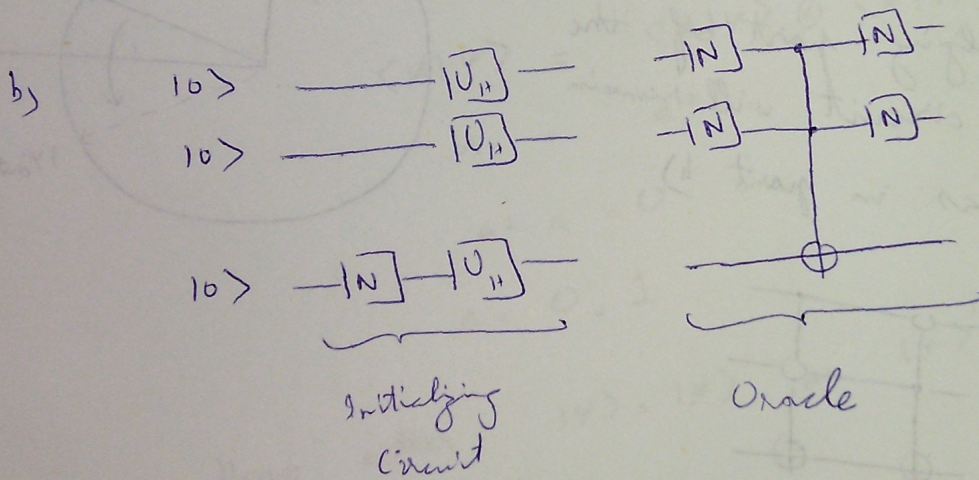 b)
|0> U_H N N
|0> U_H N N
|0> N U_H
Initializing
Circuit
Oracle